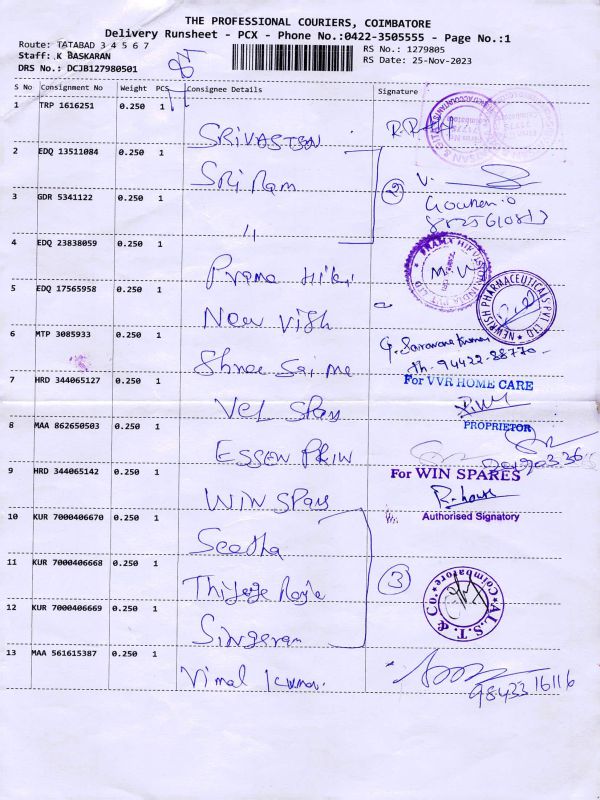 THE PROFESSIONAL COURIERS, COIMBATORE
Delivery Runsheet - PCX - Phone No.:0422-3505555 - Page No.:1
Route: TATABAD 3 4 5 6 7
RS No.: 1279805
Staff: K BASKARAN
RS Date: 25-Nov-2023
DRS No.: DCJB127980501
S No Consignment No Weight PCS Consignee Details Signature
1 TRP 1616251 0.250 1
2 EDQ 13511084 0.250 1 Sri Ram
3 GDR 5341122 0.250 1 "
4 EDQ 23838059 0.250 1
5 EDQ 17565958 0.250 1 New Vish
6 MTP 3085933 0.250 1 Shree Sai
G. Saravana Kumar
Ph. 94422-88770
7 HRD 344065127 0.250 1 Vel Spares
For VVR HOME CARE
PROPRIETOR
8 MAA 862650503 0.250 1 ESSEN PRIN
9 HRD 344065142 0.250 1 WIN Spares
For WIN SPARES
Authorised Signatory
10 KUR 7000406670 0.250 1
11 KUR 7000406668 0.250 1
12 KUR 7000406669 0.250 1 Singaram
3
A.L.S.T. & Co. Coimbatore
13 MAA 561615387 0.250 1 Vimal Kumar.
98433 16116
2
NEWRISH PHARMACEUTICALS PVT LTD